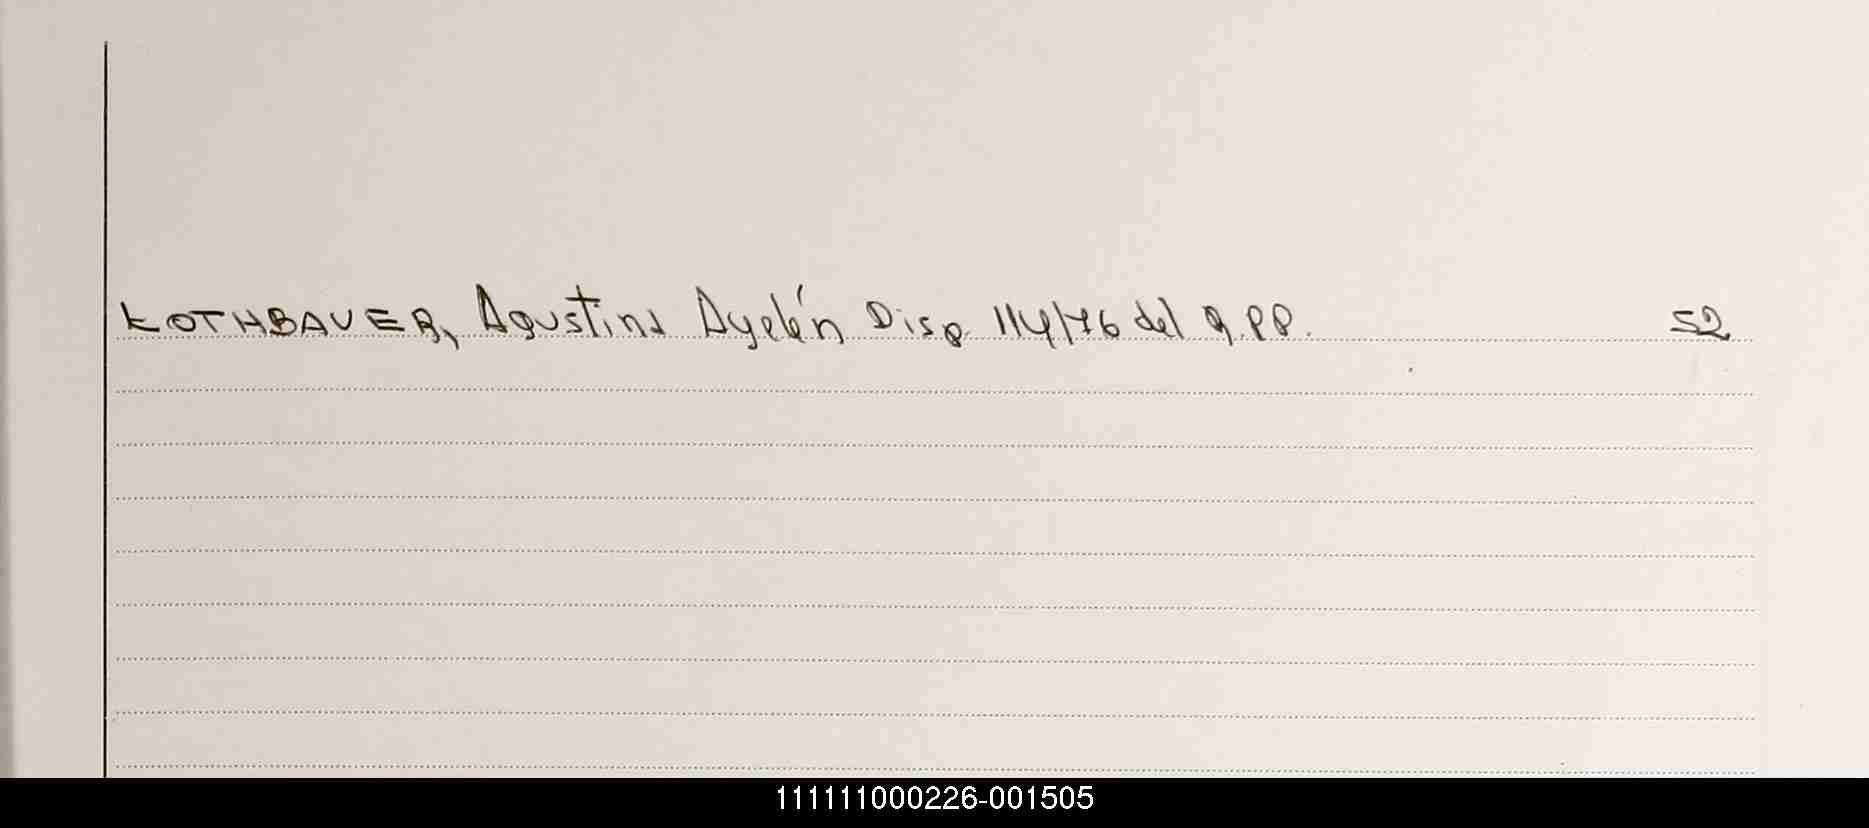 KOTHBAUER, Agustina Ayelén Disp. 114/76 del R.PP. 52
111111000226-001505